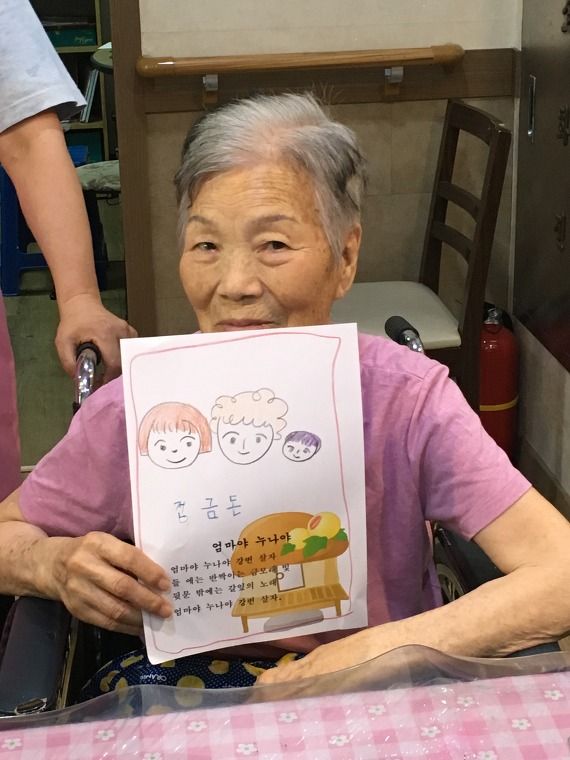 금 돈
엄마야 누나야
엄마야 누나야 강변 살자
들 에는 반짝이는 금모래 빛
뒷문 밖에는 갈잎의 노래
엄마야 누나야 강변 살자.